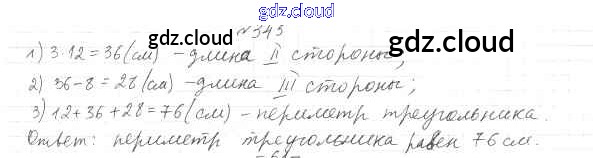 gdz.cloud
№345
1) 3·12=36(см) - длина II стороны;
gdz.cloud gdz.cloud
2) 36-8=28(см) - длина III стороны;
3) 12+36+28=76(см) - периметр треугольника.
Ответ: периметр треугольника равен 76 см.
- 61 -